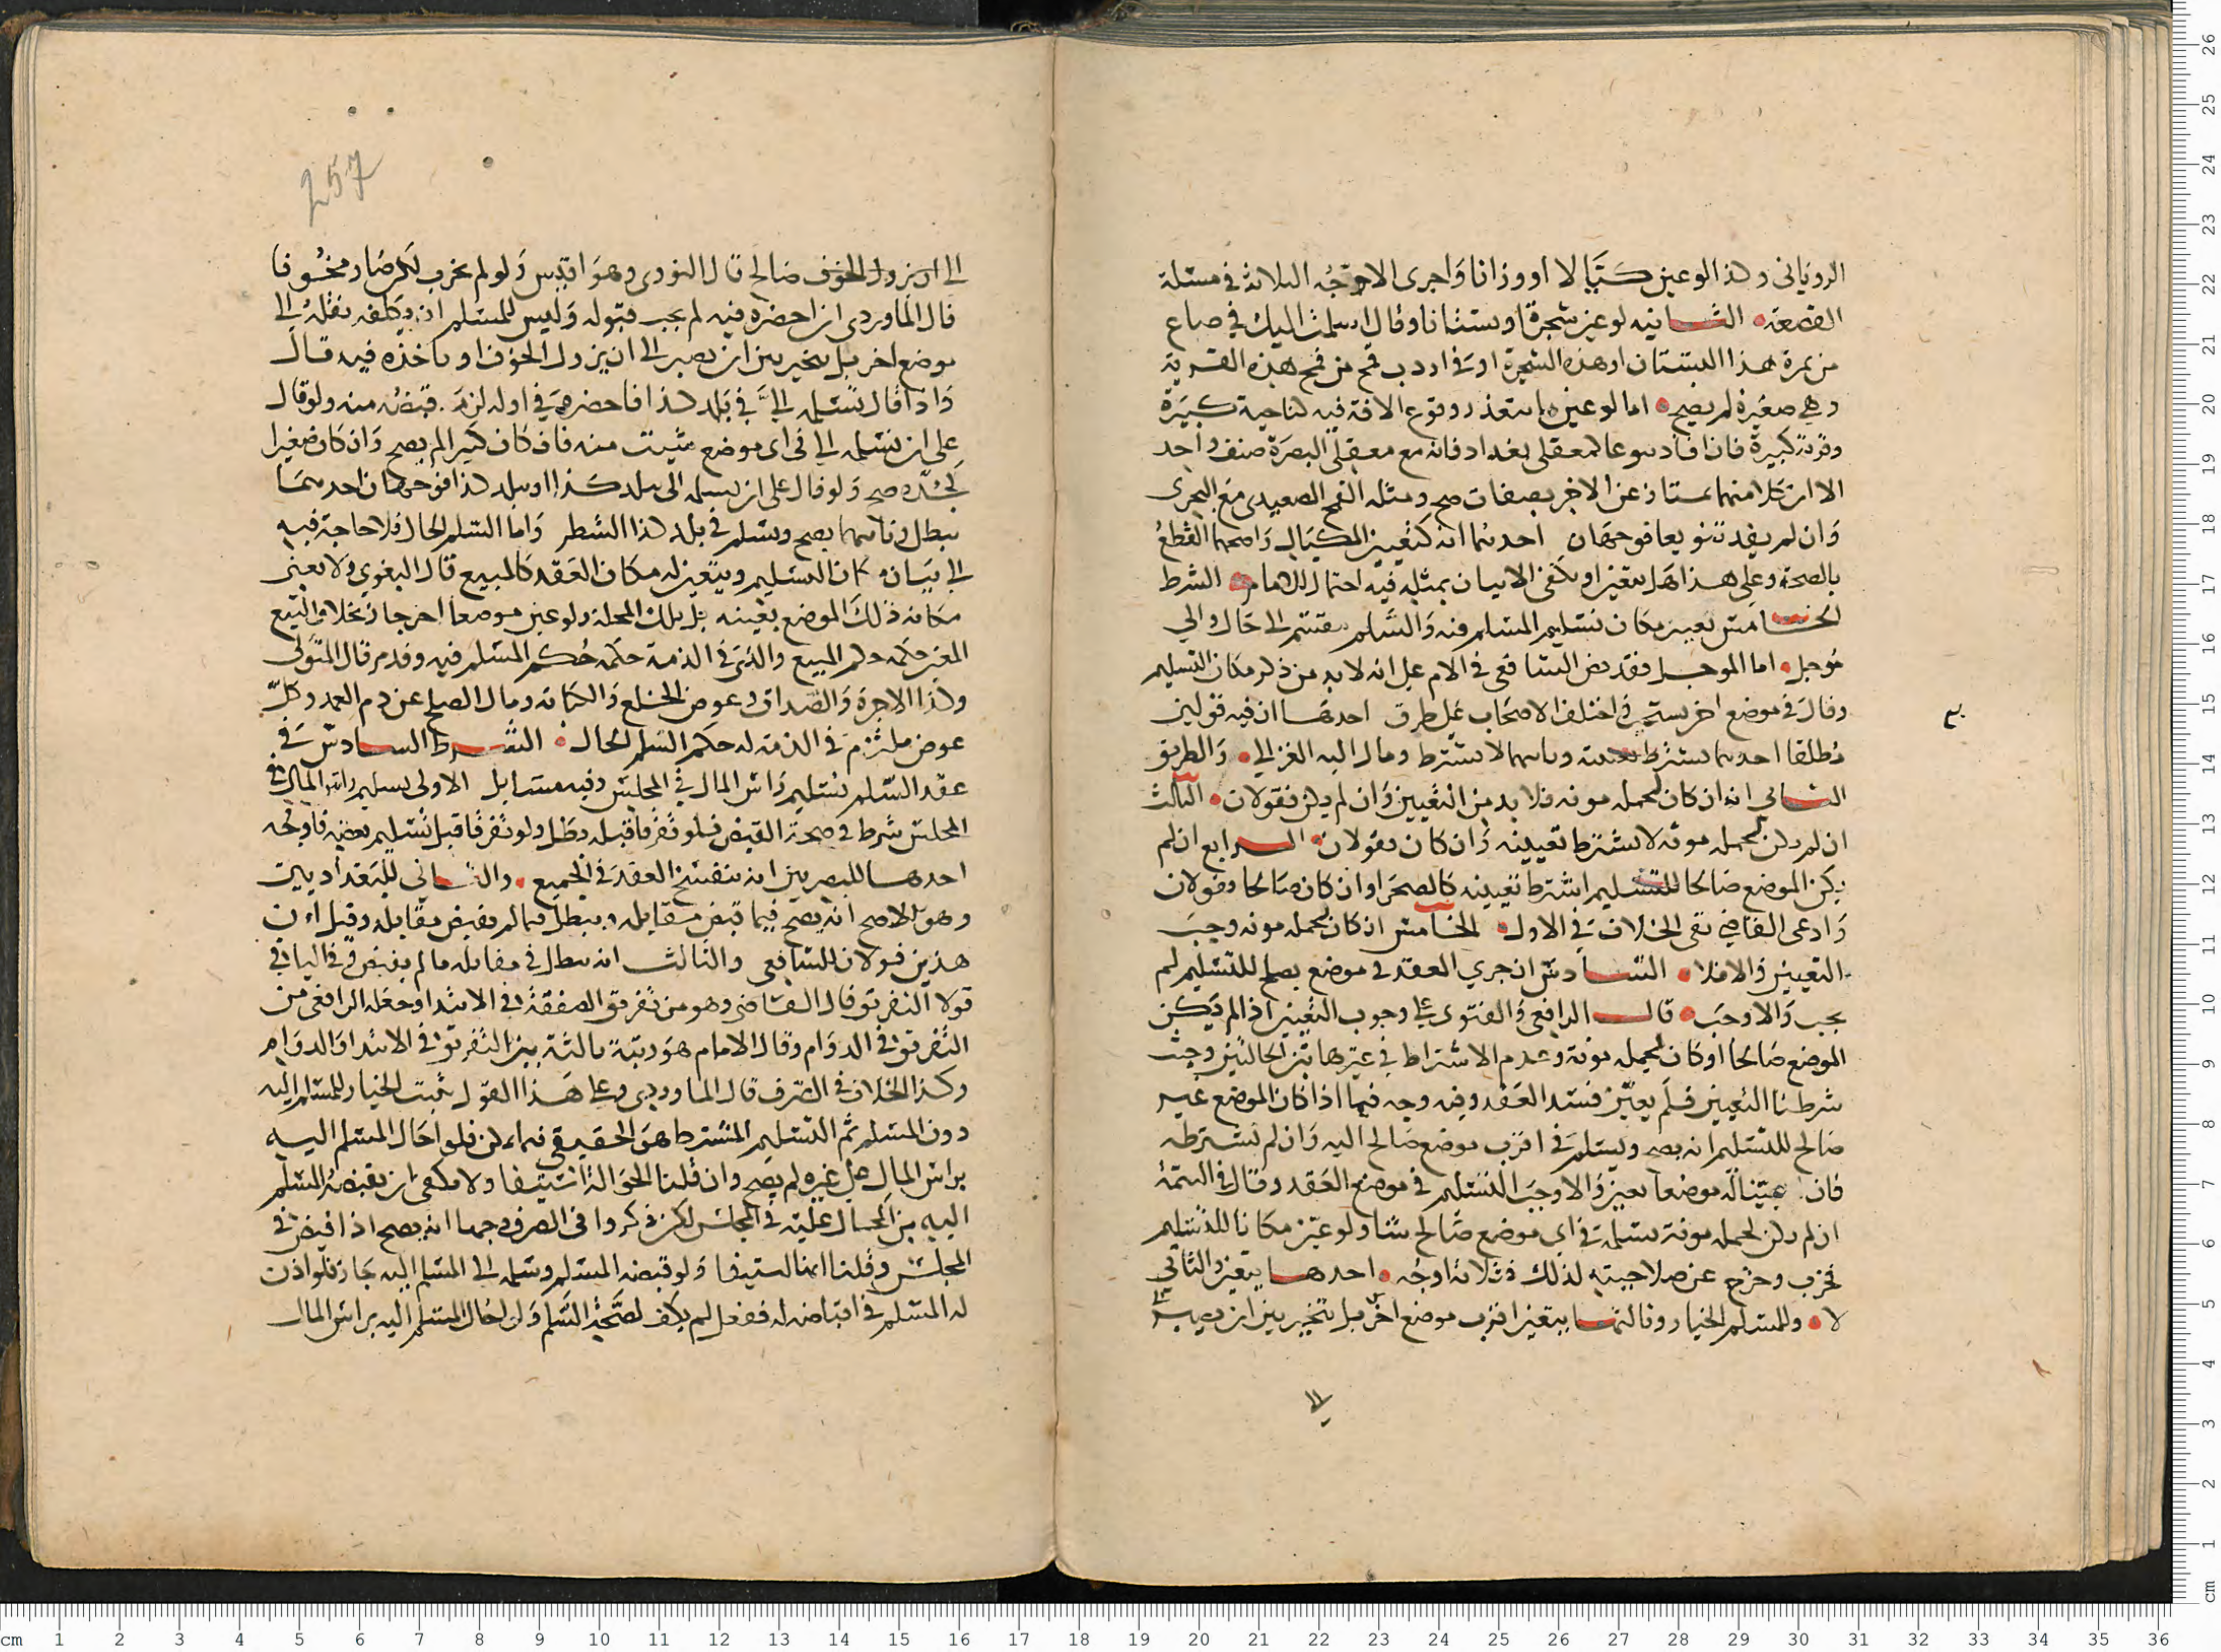 الروياني وكذا لو عين كيالا او وزانا واجرى الاوجه الثلاثة في مسئلة
القصعة الثانيه لو عين شجرة او بستانا وقال اسلمت اليك في صاع
من ثمرة هذا البستان او هذه الشجرة او في اردب قمح من قمح هذه القرية
وهي صغيرة لم يصح اما لو عين ما يتعذر وقوع الافة فيه كناحية كبيرة
وقرية كبيرة فان افاد نوعا كمعقلي بغداد فانه مع معقلي البصرة صنف واحد
الا ان كلا منهما يمتاز عن الاخر بصفات صح ومثله القمح الصعيدي مع البحري
وان لم يفد تنويعا فوجهان احدهما انه كتعيين المكيال واصحهما القطع
بالصحة وعلى هذا هل يتعين او يكفي الاتيان بمثله فيه احتمال للامام الشرط
الخامس تعيين مكان تسليم المسلم فيه والسلم ينقسم الى حال والي
مؤجل اما الموجل فقد نص الشافعي في الام على انه لا بد من ذكر مكان التسليم
وقال في موضع اخر يستحب واختلف الاصحاب على طرق احدها ان فيه قولين
مطلقا احدهما يشترط تعيينه وثانيهما لا يشترط ومال اليه الغزالي والطريق
الثاني انه ان كان لحمله مونه فلا بد من التعيين وان لم يكن فقولان الثالث
ان لم يكن لحمله مونة لا يشترط تعيينه وان كان فقولان الرابع ان لم
يكن الموضع صالحا للتسليم اشترط تعيينه كالصحرا وان كان صالحا فقولان
وادعى القاضي نفي الخلاف في الاول الخامس ان كان لحمله مونه وجب
التعيين والا فلا السادس ان جرى العقد في موضع يصلح للتسليم لم
يجب والا وجب قال الرافعي والفتوى على وجوب التعيين اذا لم يكن
الموضع صالحا او كان لحمله مونة وعدم الاشتراط في غيرها بين الحالتين وحيث
شرطنا التعيين فلم يعين فسد العقد وفيه وجه فيما اذا كان الموضع غير
صالح للتسليم انه يصح ويسلم في اقرب موضع صالح اليه وان لم نشترطه
فان عينا له موضعا تعين والا وجب التسليم في موضع العقد وقال في التتمة
ان لم يكن لحمله مونة يسلمه في اي موضع صالح شا ولو عين مكانا للتسليم
فخرب وخرج عن صلاحيته لذلك فثلاثة اوجه احدها يتعين والثاني
لا وللمسلم الخيار وثالثها يتعين اقرب موضع اخر بل يتخير بين ان يصبر
الى
257
الى ان يزول الخوف صالح قال النووي وهو اقيس ولو لم يخرب لكن صار مخوفا
قال الماوردي ان احضره فيه لم يجب قبوله وليس للمسلم ان يكلفه نقله الى
موضع اخر بل يتخير بين ان يصبر الى ان يزول الخوف او ياخذه فيه قال
واذا قال تسلمه الي في بلد كذا فاحضره في اوله لزمه قبضه منه ولو قال
على ان تسلمه الي في اي موضع شيت منه فان كان كبيرا لم يصح وان كان صغيرا
كمحلة صح ولو قال على ان يسلمه الى بلد كذا او بلد كذا فوجهان احدهما
يبطل وثانيهما يصح ويسلم في بلد كذا الشطر واما السلم الحال فلا حاجة فيه
الى بيان مكان التسليم ويتعين له مكان العقد كالمبيع قال البغوي ولا يعني
مكانه ذلك الموضع بعينه بل تلك المحلة ولو عين موضعا اخر جاز بخلاف البيع
المعين حكمه حكم المبيع والذي في الذمة حكمه حكم المسلم فيه وقد مر قال المتولي
وكذا الاجرة والصداق وعوض الخلع والكتابة ومال الصلح عن دم العمد وكل
عوض ملتزم في الذمة له حكم السلم الحال الشرط السادس في
عقد السلم تسليم راس المال في المجلس وفيه مسايل الاولى تسليم راس المال في
المجلس شرط في صحة القبض فلو تفرقا قبله بطل ولو تفرقا قبل تسليم بعضه فاوجه
احدها للبصريين انه ينفسخ العقد في الجميع والثاني للبغداديين
وهو الاصح انه يصح فيما قبض مقابله ويبطل فيما لم يقبض مقابله وقيل ان
هذين قولان للشافعي والثالث انه يبطل في مقابله ما لم يقبض وفي الباقي
قولا التفريق قال القاضي وهو من تفريق الصفقة في الابتدا وجعله الرافعي من
التفريق في الدوام وقال الامام هو رتبة ثالثة بين التفريق في الابتدا والدوام
وكذا الخلاف في الصرف قال الماوردي وعلى هذا القول يثبت الخيار للمسلم اليه
دون المسلم ثم التسليم المشترط هو الحقيقي فلو احال المسلم اليه
براس المال على غيره لم يصح وان قلنا الحوالة استيفا ولا يكفي ان يقبضه المسلم
اليه من المحال عليه في المجلس لكن ذكروا في الصرف وجها انه يصح اذا قبض في
المجلس وقلنا انها استيفا ولو قبضه المسلم وسلمه الى المسلم اليه جاز فلو اذن
له المسلم في اقباضه له ففعل لم يكف لصحة السلم ولو احال المسلم اليه براس المال